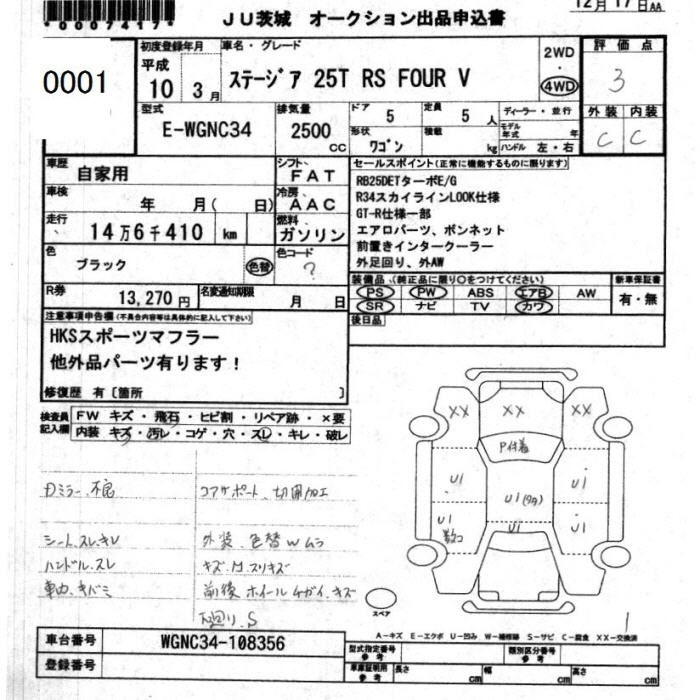 *0007417*
JU茨城 オークション出品申込書
12月17日AA
0001
初度登録年月
平成
10 3月
車名・グレード
ステージア 25T RS FOUR V
2WD
・
4WD
評価点
3
外装 内装
C C
型式
E-WGNC34
排気量
2500 CC
ドア 5
定員 5 人
形状 ワゴン
積載 kg
ディーラー・並行
モデル年式 年
ハンドル 左・右
車歴 自家用
シフト FAT
車検 年 月( 日)
冷房 AAC
走行 14万6千410 km
燃料 ガソリン
色 ブラック 色替
色コード ?
R券 13,270円
名変通知期限 月 日
セールスポイント(正常に機能するものに限ります)
RB25DETターボE/G
R34スカイラインLOOK仕様
GT-R仕様一部
エアロパーツ、ボンネット
前置きインタークーラー
外足回り、外AW
装備品(純正品に限り○をつけてください)
新車保証書
PS PW ABS エアB AW
SR ナビ TV カワ
有・無
後日品
注意事項申告欄(不具合内容等は具体的に記入して下さい)
HKSスポーツマフラー
他外品パーツ有ります!
修復歴 有〔箇所 〕
検査員記入欄
FW キズ・飛石・ヒビ割・リペア跡・×要
内装 キズ・汚レ・コゲ・穴・スレ・キレ・破レ
コアサポート、切開加工
シート、スレ、キレ
外装、色替Wムラ
ハンドル、スレ
キズ、凹、スリキズ
車内、キバミ
前後ホイールチガイ、キズ
下廻り、S
XX XX XX
P付着
U1 U1(タ内) U1
U1 U1 U1
スペア
A-キズ E-エクボ U-凹み W-補修跡 S-サビ C-腐食 XX-交換済
車台番号 WGNC34-108356
登録番号
型式指定番号 参考
類別区分番号 参考
車庫証明用 参考
長さ cm 幅 cm 高さ cm